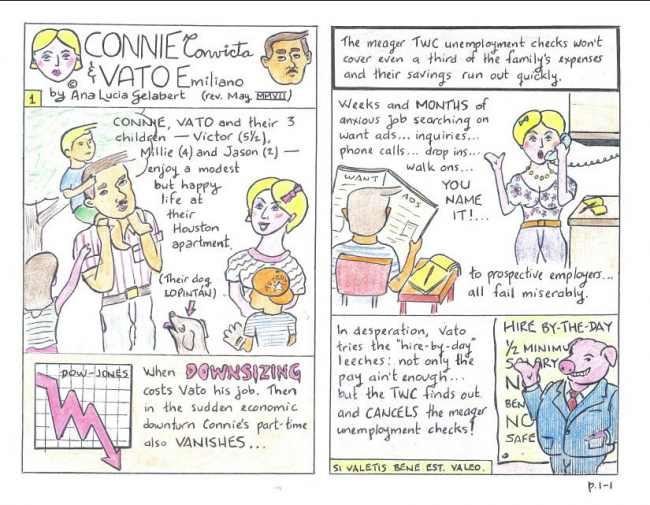 CONNIE Convicta
& VATO Emiliano
© by Ana Lucia Gelabert (rev. May MMVII)
1
CONNIE, VATO and their 3
children — Victor (5½),
Millie (4) and Jason (2) —
enjoy a modest
but happy
life at
their
Houston
apartment.
(Their dog
LOPINTÁN)
DOW-JONES
When DOWNSIZING
costs Vato his job. Then
in the sudden economic
downturn Connie's part-time
also VANISHES...
The meager TWC unemployment checks won't
cover even a third of the family's expenses
and their savings run out quickly.
Weeks and MONTHS of
anxious job searching on
want ads... inquiries...
phone calls... drop ins...
walk ons...
YOU
NAME
IT!...
WANT ADS
to prospective employers...
all fail miserably.
In desperation, Vato
tries the "hire-by-day"
leeches: not only the
pay ain't enough...
but the TWC finds out
and CANCELS the meager
unemployment checks!
HIRE BY-THE-DAY
1/2 MINIMU
SALARY
NO
BEN
NO
SAFE
SI VALETIS BENE EST. VALEO.
p.1-1